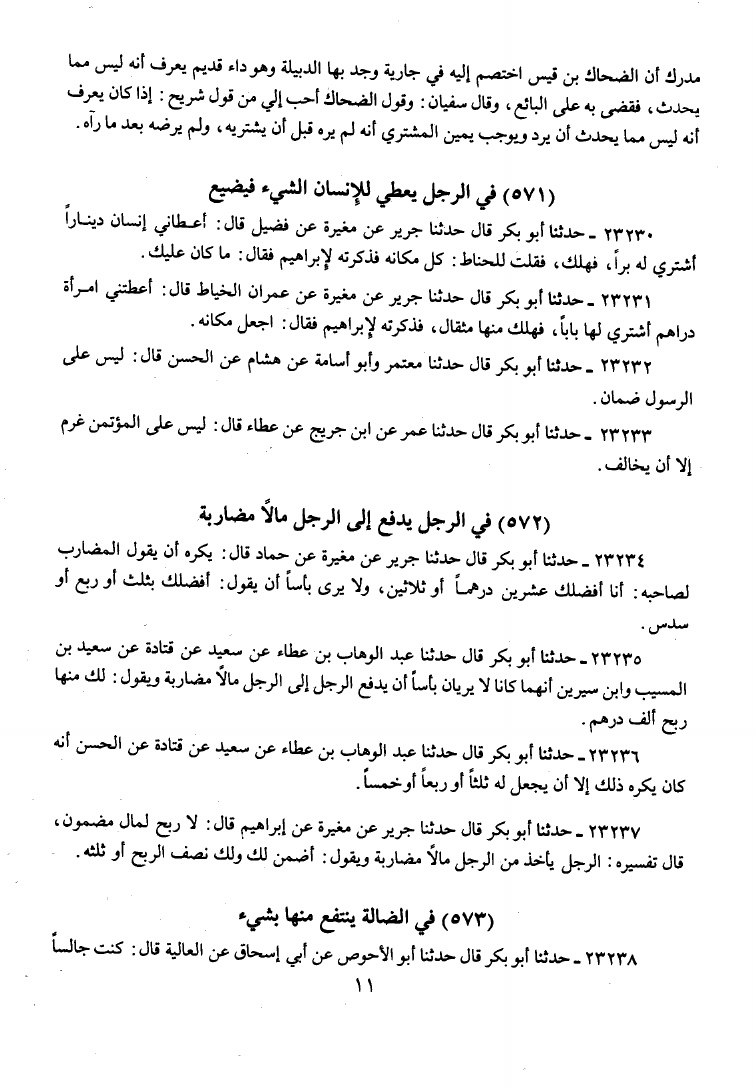 مدرك أن الضحاك بن قيس اختصم إليه في جارية وجد بها الدبيلة وهو داء قديم يعرف أنه ليس مما
يحدث، فقضى به على البائع، وقال سفيان: وقول الضحاك أحب إلي من قول شريح: إذا كان يعرف
أنه ليس مما يحدث أن يرد ويوجب يمين المشتري أنه لم يره قبل أن يشتريه، ولم يرضه بعد ما رآه.
(٥٧١) في الرجل يعطي للإنسان الشيء فيضيع
٢٣٢٣٠ ـ حدثنا أبو بكر قال حدثنا جرير عن مغيرة عن فضيل قال: أعطاني إنسان ديناراً
أشتري له براً، فهلك، فقلت للحناط: كل مكانه فذكرته لإبراهيم فقال: ما كان عليك.
٢٣٢٣١ ـ حدثنا أبو بكر قال حدثنا جرير عن مغيرة عن عمران الخياط قال: أعطتني امرأة
دراهم أشتري لها باباً، فهلك منها مثقال، فذكرته لإبراهيم فقال: اجعل مكانه.
٢٣٢٣٢ ـ حدثنا أبو بكر قال حدثنا معتمر وأبو أسامة عن هشام عن الحسن قال: ليس على
الرسول ضمان.
٢٣٢٣٣ ـ حدثنا أبو بكر قال حدثنا عمر عن ابن جريج عن عطاء قال: ليس على المؤتمن غرم
إلا أن يخالف.
(٥٧٢) في الرجل يدفع إلى الرجل مالاً مضاربة
٢٣٢٣٤ ـ حدثنا أبو بكر قال حدثنا جرير عن مغيرة عن حماد قال: يكره أن يقول المضارب
لصاحبه: أنا أفضلك عشرين درهماً أو ثلاثين، ولا يرى بأساً أن يقول: أفضلك بثلث أو ربع أو
سدس.
٢٣٢٣٥ ـ حدثنا أبو بكر قال حدثنا عبد الوهاب بن عطاء عن سعيد عن قتادة عن سعيد بن
المسيب وابن سيرين أنهما كانا لا يريان بأساً أن يدفع الرجل إلى الرجل مالاً مضاربة ويقول: لك منها
ربح ألف درهم.
٢٣٢٣٦ ـ حدثنا أبو بكر قال حدثنا عبد الوهاب بن عطاء عن سعيد عن قتادة عن الحسن أنه
كان يكره ذلك إلا أن يجعل له ثلثاً أو ربعاً أو خمساً.
٢٣٢٣٧ ـ حدثنا أبو بكر قال حدثنا جرير عن مغيرة عن إبراهيم قال: لا ربح لمال مضمون،
قال تفسيره: الرجل يأخذ من الرجل مالاً مضاربة ويقول: أضمن لك ولك نصف الربح أو ثلثه.
(٥٧٣) في الضالة ينتفع منها بشيء
٢٣٢٣٨ ـ حدثنا أبو بكر قال حدثنا أبو الأحوص عن أبي إسحاق عن العالية قال: كنت جالساً
١١